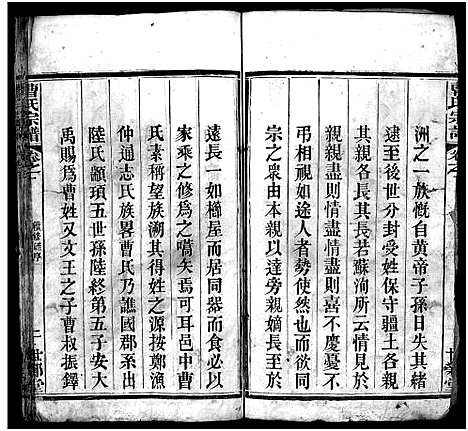 洲之一族慨自黃帝子孫日失其緒
逮至後世分封受姓保守疆土各親
其親各長其長若蘇洵所云情見於
親親盡則情盡情盡則喜不慶憂不
弔相視如途人者勢使然也而欲同
宗之衆由本親以達旁親嫡長至於
遠長一如櫛屋而居同器而食必以
家乘之修為之嚆矢焉可耳邑中曹
氏素稱望族溯其得姓之源按鄭漁
仲通志氏族畧曹氏乃譙國郡系出
陸氏顓頊五世孫陸終第五子安大
禹賜為曹姓又文王之子曹叔振鐸
曹氏宗譜
卷之
二